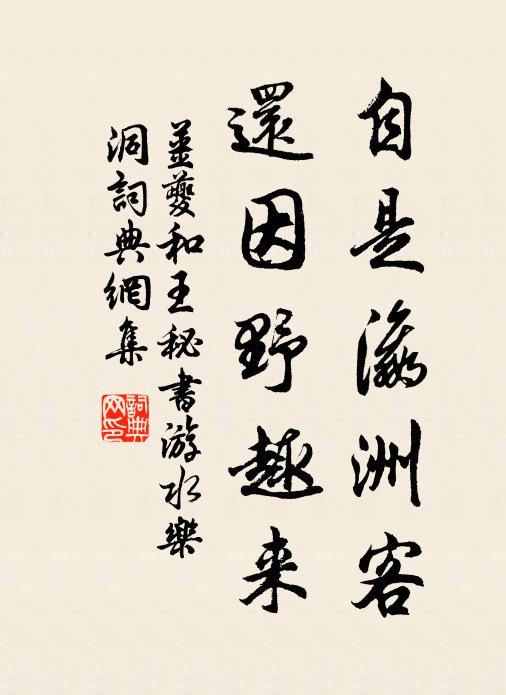 自是瀛洲客
還因野趣来
姜夔和王秘書游水樂
洞詞典網集
詞典网印